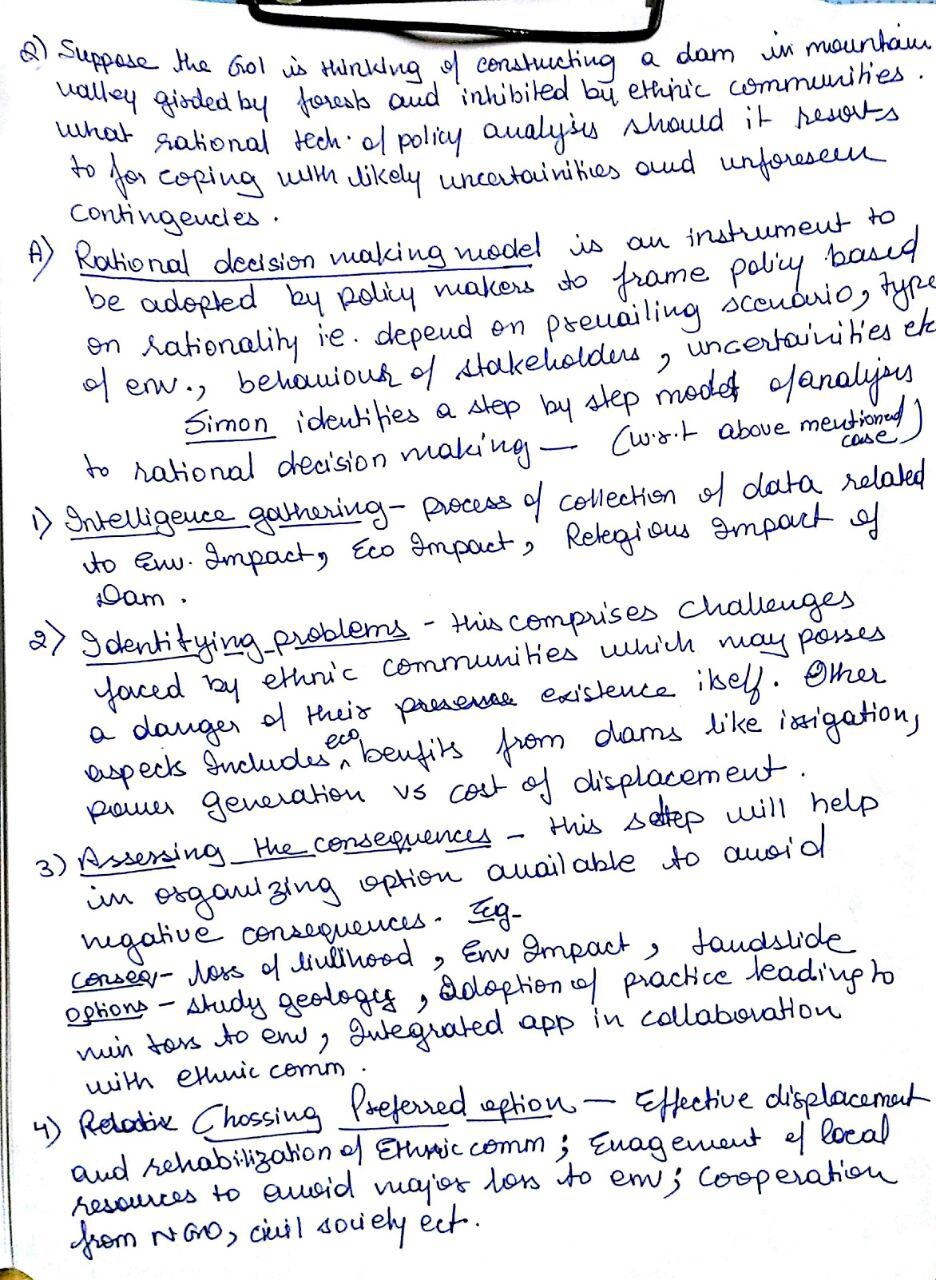 Q) Suppose the GoI is thinking of constructing a dam in mountain
valley girded by forests and inhibited by ethnic communities.
what rational tech. of policy analysis should it resorts
to for coping with likely uncertainities and unforeseen
contingencies.
A) Rational decision making model is an instrument to
be adopted by policy makers to frame policy based
on rationality i.e. depend on prevailing scenario, type
of env., behaviour of stakeholders, uncertainities etc
Simon identifies a step by step model of analysis
to rational decision making — (w.r.t above mentioned case)
1) Intelligence gathering - process of collection of data related
to Env. Impact, Eco Impact, Relegious Impact of
Dam.
2) Identifying problems - this comprises challenges
faced by ethnic communities which may posses
a danger of their presense existence itself. Other
aspects Includes eco benifits from dams like irrigation,
power generation vs cost of displacement.
3) Assessing the consequences - this setep will help
in organizing option available to avoid
negative consequences. Eg-
conseq - loss of livlihood, Env Impact, Landslide
options - study geology, Adoption of practice leading to
min loss to env, Integrated app in collaboration
with ethnic comm.
4) Chossing Preferred option — Effective displacement
and rehabilization of Ethnic comm; Enagement of local
resources to avoid major loss to env; Cooperation
from NGO, civil soviety ect.